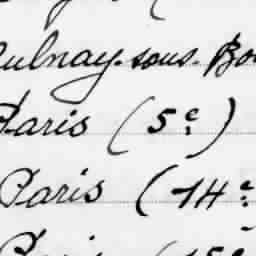 Aulnay-sous-Bo
Paris (5e)
Paris (14e
Paris (15e